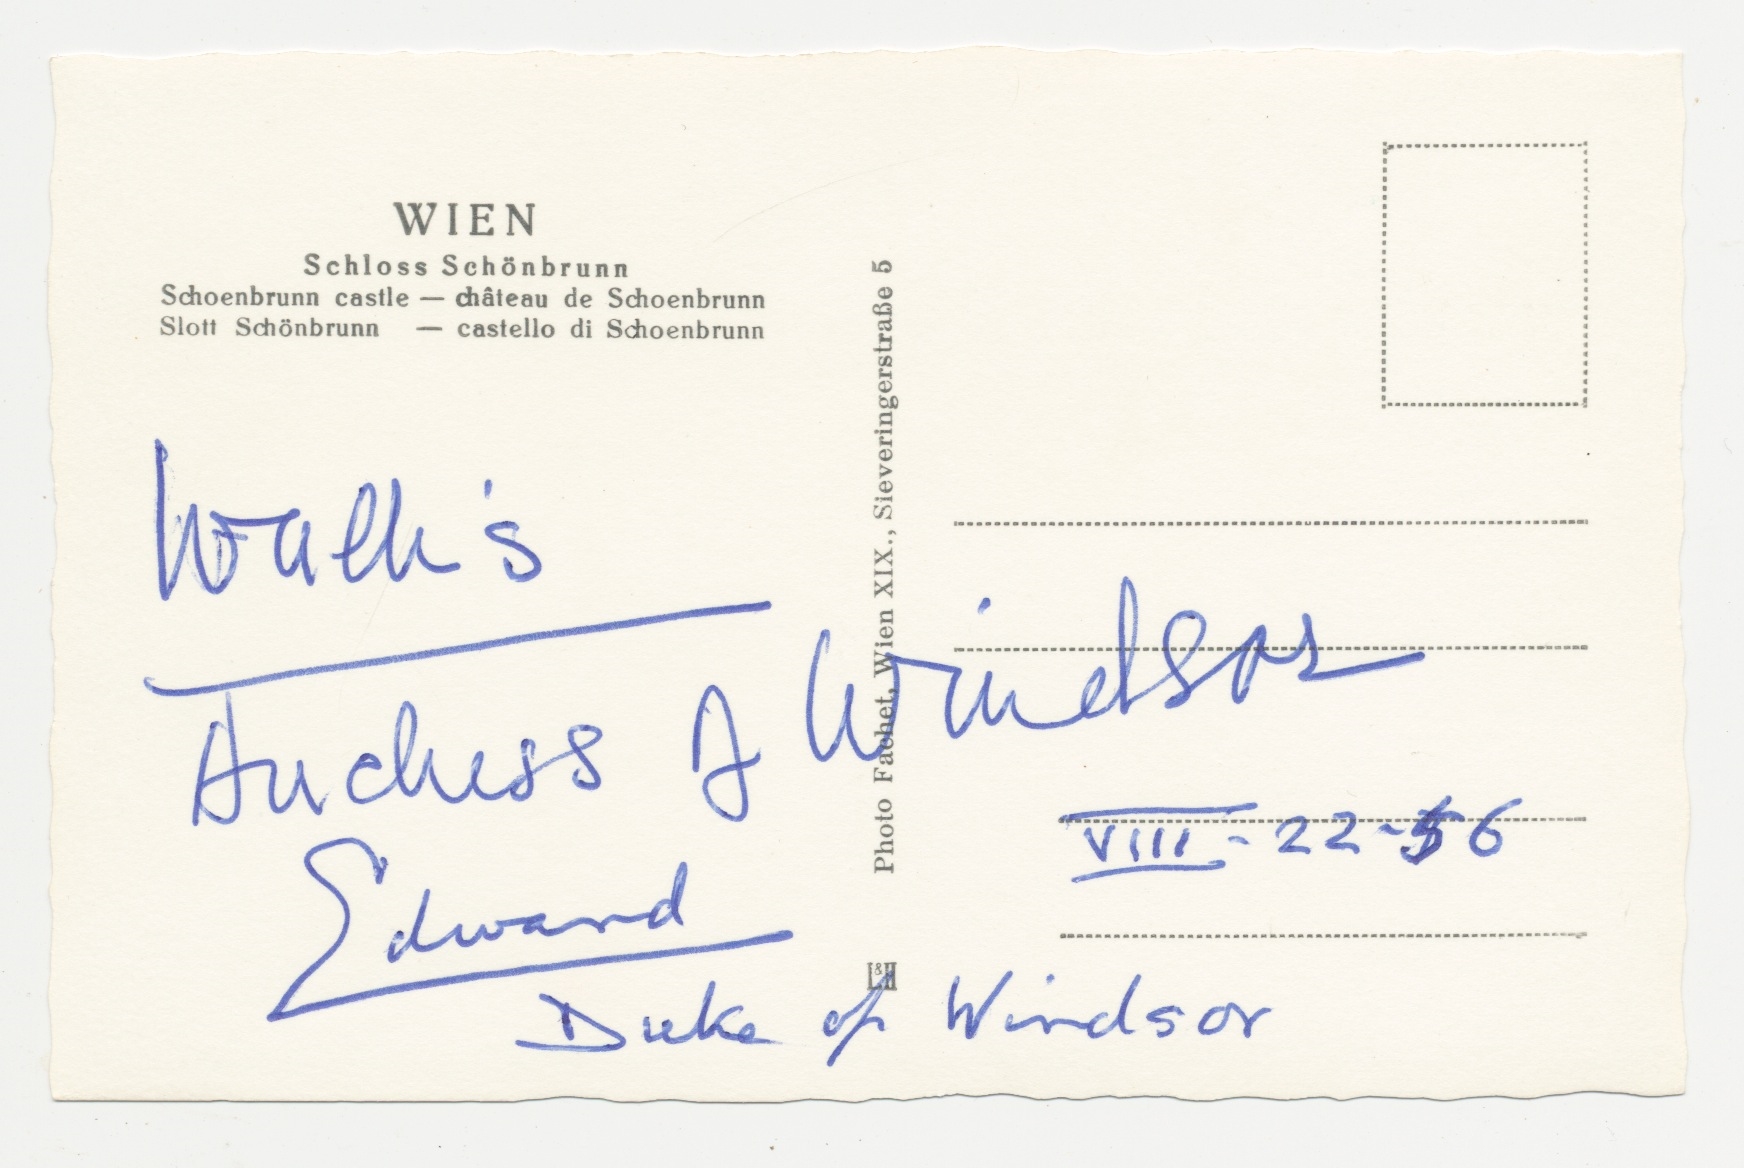 WIEN
Schloss Schönbrunn
Schoenbrunn castle — château de Schoenbrunn
Slott Schönbrunn — castello di Schoenbrunn
Photo Fachet, Wien XIX., Sieveringerstraße 5
L&H
Wallis
Duchess of Windsor
VIII - 22 - 56
Edward
Duke of Windsor